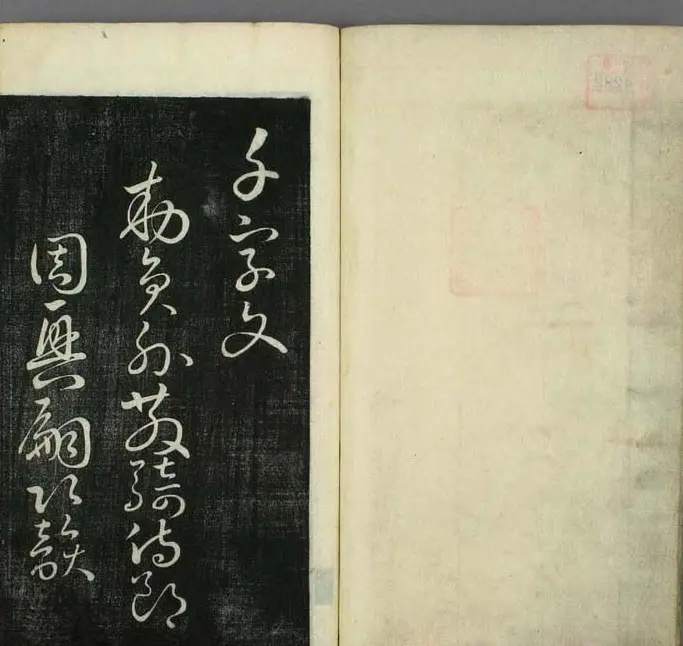 千字文
勅員外散騎侍郎
周興嗣次韻